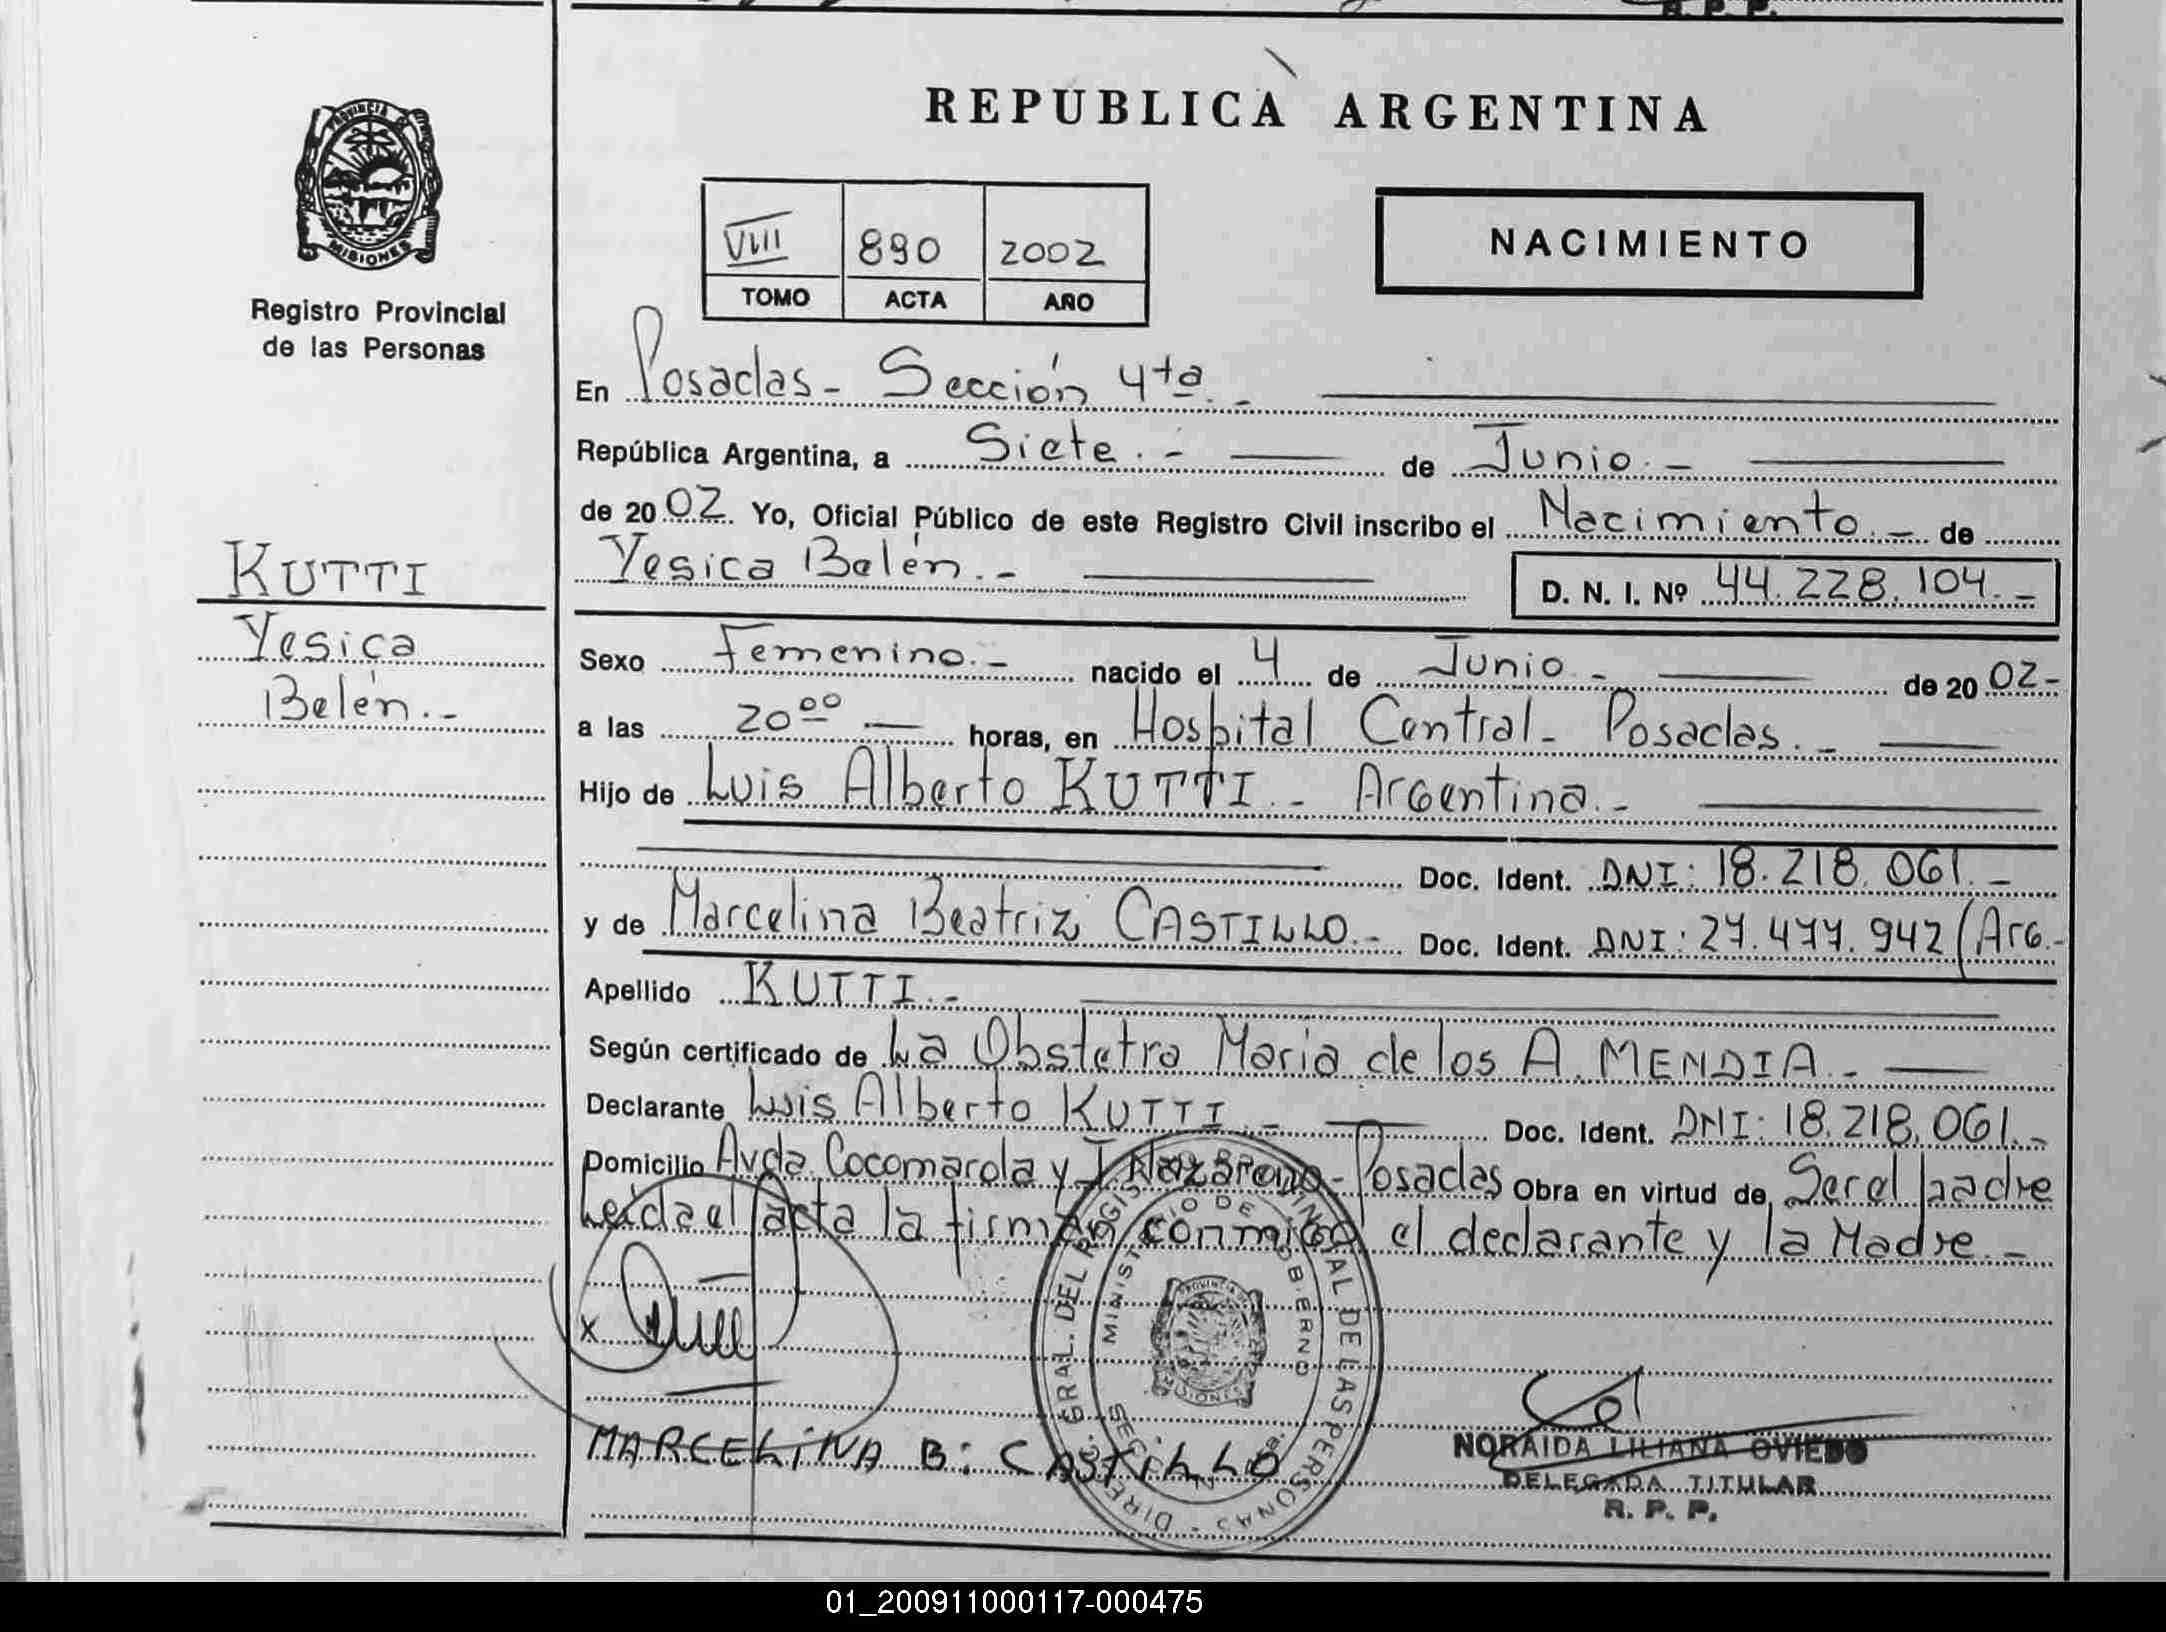 R. P. P.
REPUBLICA ARGENTINA
PROVINCIA DE
MISIONES
Registro Provincial
de las Personas
VIII 890 2002
TOMO ACTA AÑO
NACIMIENTO
En Posadas - Sección 4ta. -
República Argentina, a Siete. - de Junio. -
de 2002. Yo, Oficial Público de este Registro Civil inscribo el Nacimiento. - de
Yesica Belén. - D. N. I. Nº 44.228.104. -
KUTTI
Yesica
Belén. -
Sexo Femenino. - nacido el 4 de Junio. - de 2002 -
a las 20 00 horas, en Hospital Central - Posadas. -
Hijo de Luis Alberto KUTTI. - Argentina. -
Doc. Ident. DNI: 18.218.061. -
y de Marcelina Beatriz CASTILLO. - Doc. Ident. DNI: 27.477.942 (Arg. -
Apellido KUTTI. -
Según certificado de La Obstetra Maria de los A. MENDIA. -
Declarante Luis Alberto KUTTI. - Doc. Ident. DNI: 18.218.061. -
Domicilio Avda. Cocomarola y J. Nazareno - Posadas Obra en virtud de Ser el padre
Leída el acta la firman conmigo el declarante y la Madre. -
DIREC. GRAL. DEL REGISTRO PROVINCIAL DE LAS PERSONAS
MINISTERIO DE GOBIERNO
x
MARCELiNA B: CASTiLLO
NORAIDA LILIANA OVIEDO
DELEGADA TITULAR
R. P. P.
01_200911000117-000475